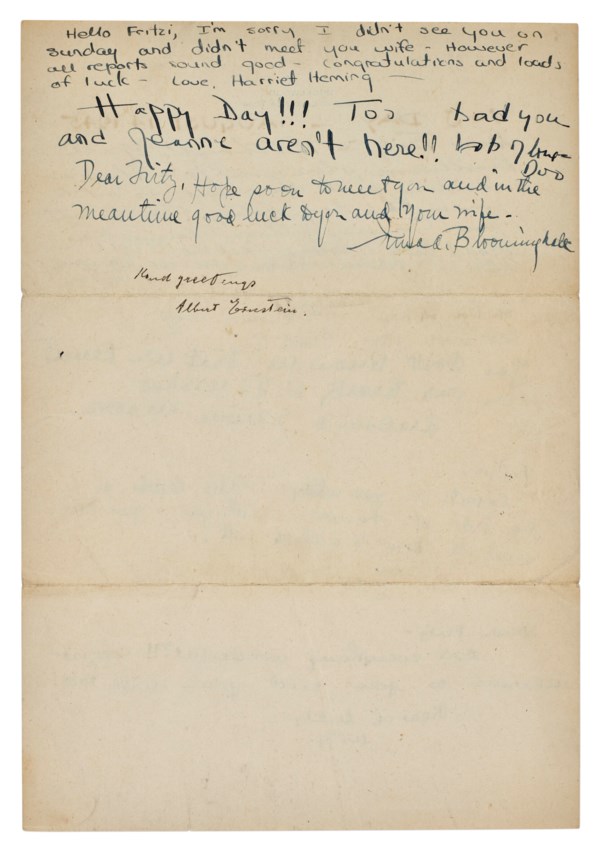 Hello Fritzi, I'm sorry I didn't see you on
Sunday and didn't meet you wife - However
all reports sound good - Congratulations and loads
of luck - Love, Harriet Heming
Happy Day!!! Too bad you
and Jeanne aren't here!!
Dear Fritz, Hope soon to meet you and in the
meantime good luck to you and your wife -
Bloomingdale
Kind greetings
Albert Einstein.